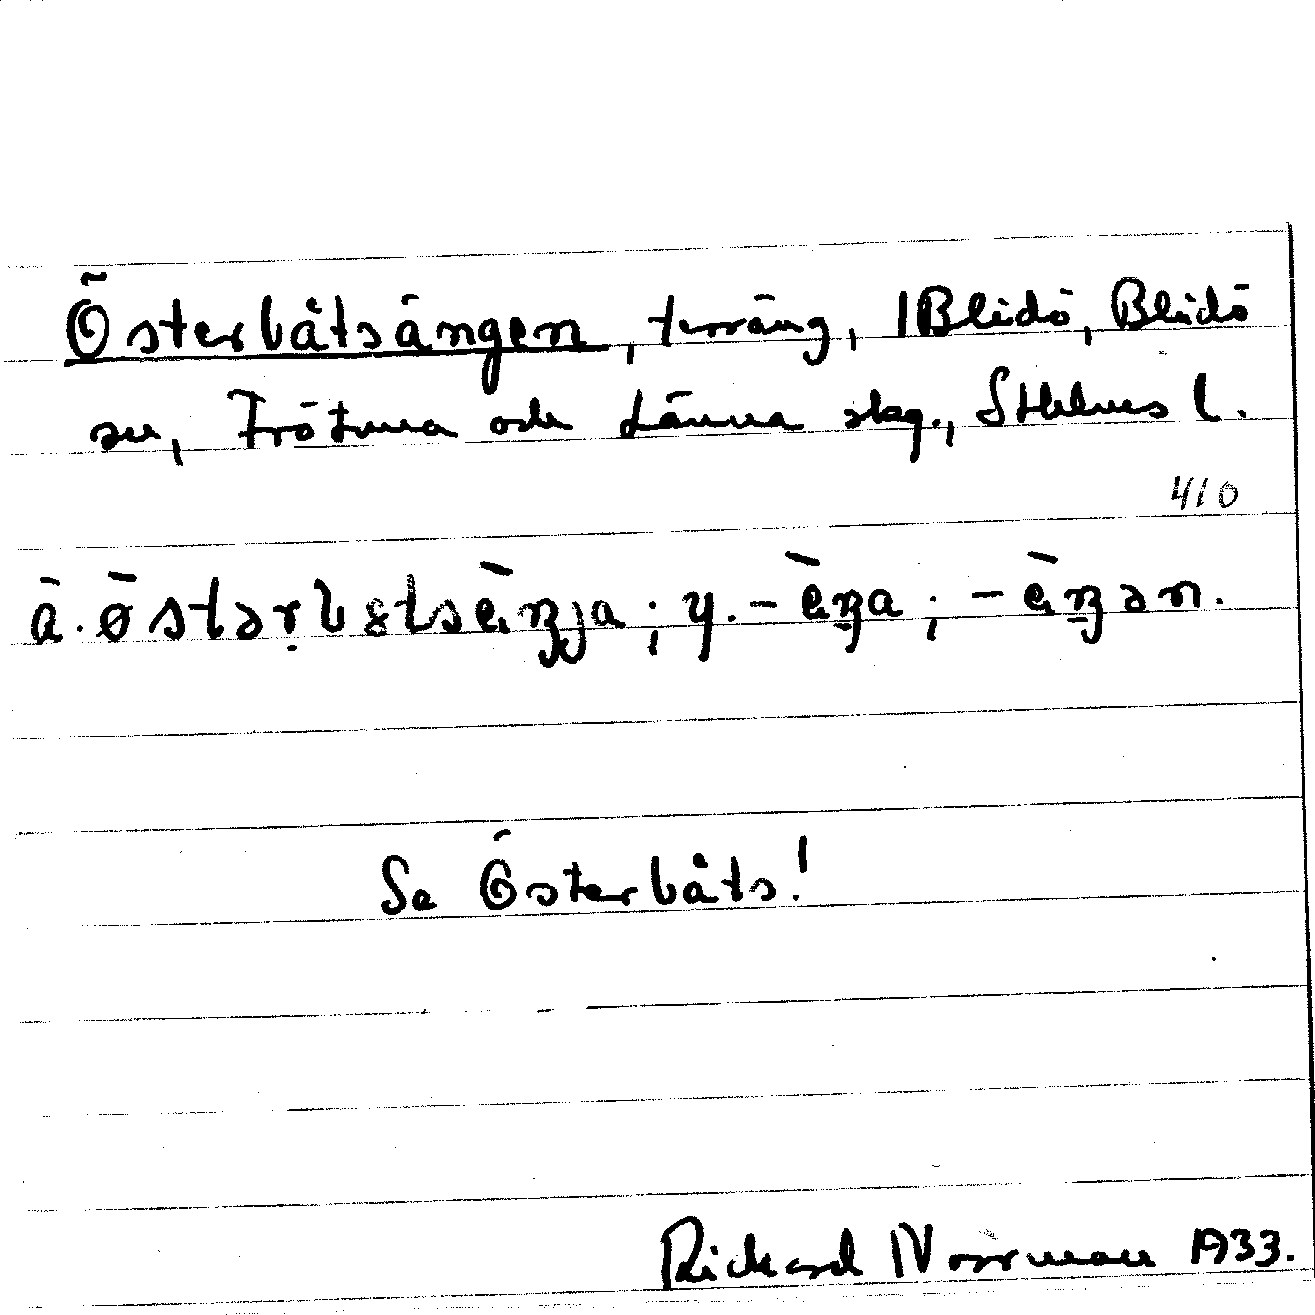 Österbåtsängen, terräng, 1 Blidö, Blidö
sn, Frötuna och Länna skg., Sthlms l.
410
ä. ø̀stərbåtsèŋja; y. -èŋa; -èŋən.
Se Österbåts!
Rickard Norrman 1933.